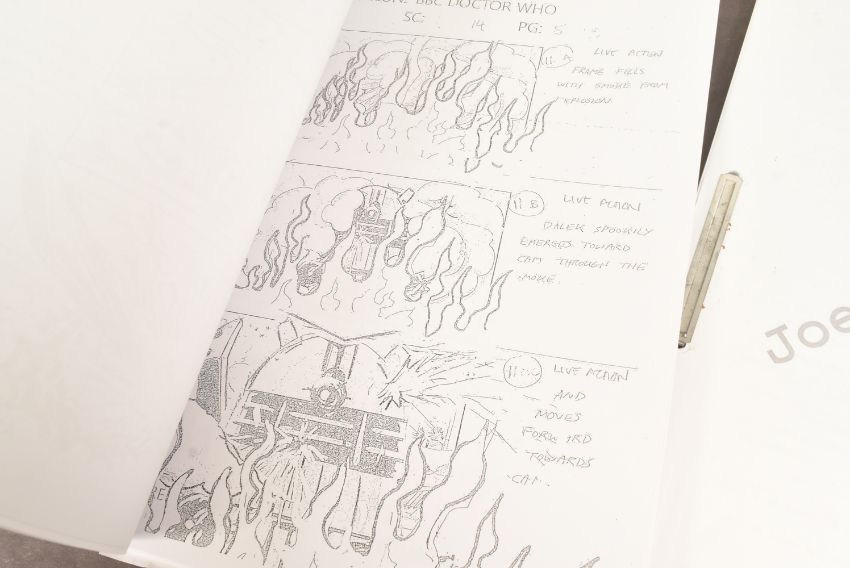 BBC DOCTOR WHO
SC: 14 PG: 5
11 A LIVE ACTION
FRAME FILLS
WITH SMOKE FROM
EXPLOSION
11 B LIVE ACTION
DALEK SPOOKILY
EMERGES TOWARD
CAM THROUGH THE
SMOKE.
LIVE ACTION
AND
MOVES
FORWARD
TOWARDS
CAM.
Joe